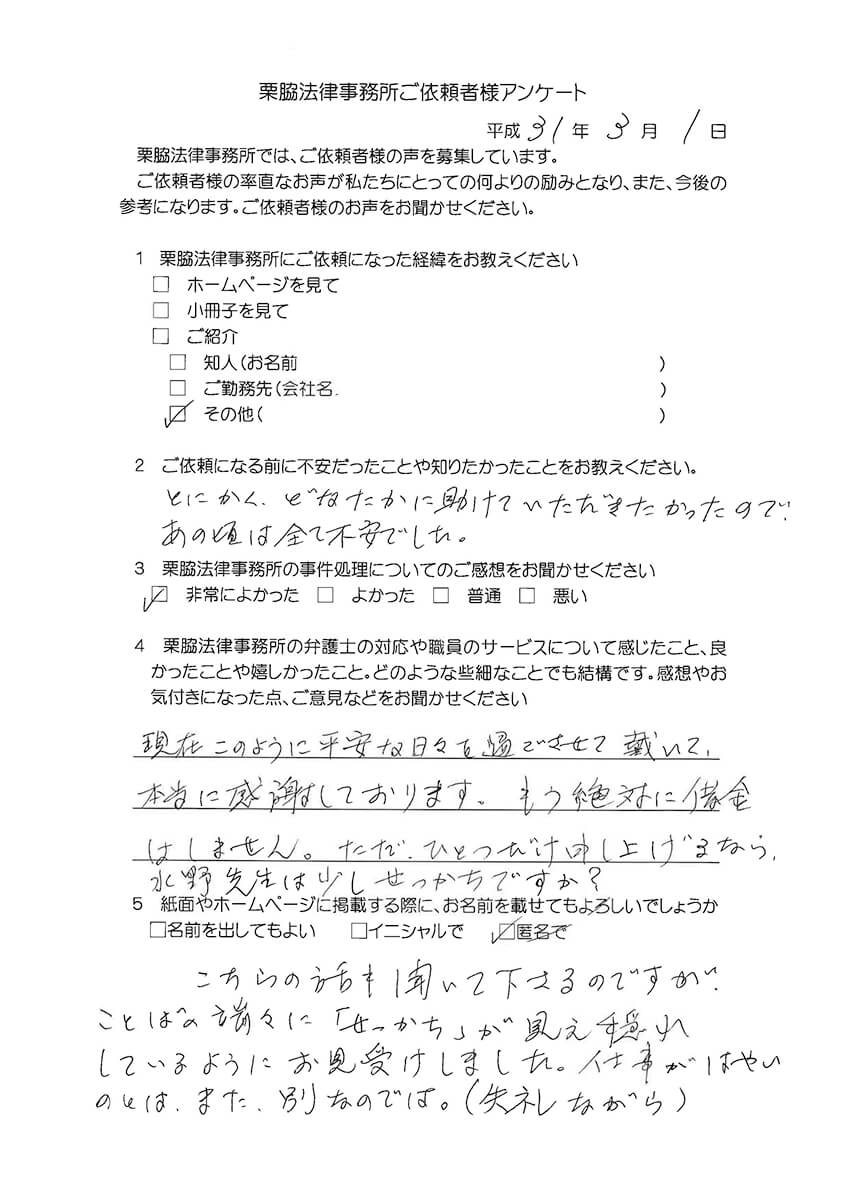 栗脇法律事務所ご依頼者様アンケート
平成 31 年 3 月 1 日
栗脇法律事務所では、ご依頼者様の声を募集しています。
ご依頼者様の率直なお声が私たちにとっての何よりの励みとなり、また、今後の
参考になります。ご依頼者様のお声をお聞かせください。
1 栗脇法律事務所にご依頼になった経緯をお教えください
□ ホームページを見て
□ 小冊子を見て
□ ご紹介
□ 知人(お名前 )
□ ご勤務先(会社名. )
☑ その他( )
2 ご依頼になる前に不安だったことや知りたかったことをお教えください。
とにかく、どなたかに助けていただきたかったので、
あの頃は全て不安でした。
3 栗脇法律事務所の事件処理についてのご感想をお聞かせください
☑ 非常によかった □ よかった □ 普通 □ 悪い
4 栗脇法律事務所の弁護士の対応や職員のサービスについて感じたこと、良
かったことや嬉しかったこと。どのような些細なことでも結構です。感想やお
気付きになった点、ご意見などをお聞かせください
現在このように平安な日々を過ごさせて戴いて、
本当に感謝しております。もう絶対に借金
はしません。ただ、ひとつだけ申し上げるなら、
水野先生は少しせっかちですか?
5 紙面やホームページに掲載する際に、お名前を載せてもよろしいでしょうか
□名前を出してもよい □イニシャルで ☑匿名で
こちらの話も聞いて下さるのですが、
ことばの端々に「せっかち」が見え隠れ
しているようにお見受けしました。仕事がはやい
のとは、また、別なのでは。(失礼ながら)